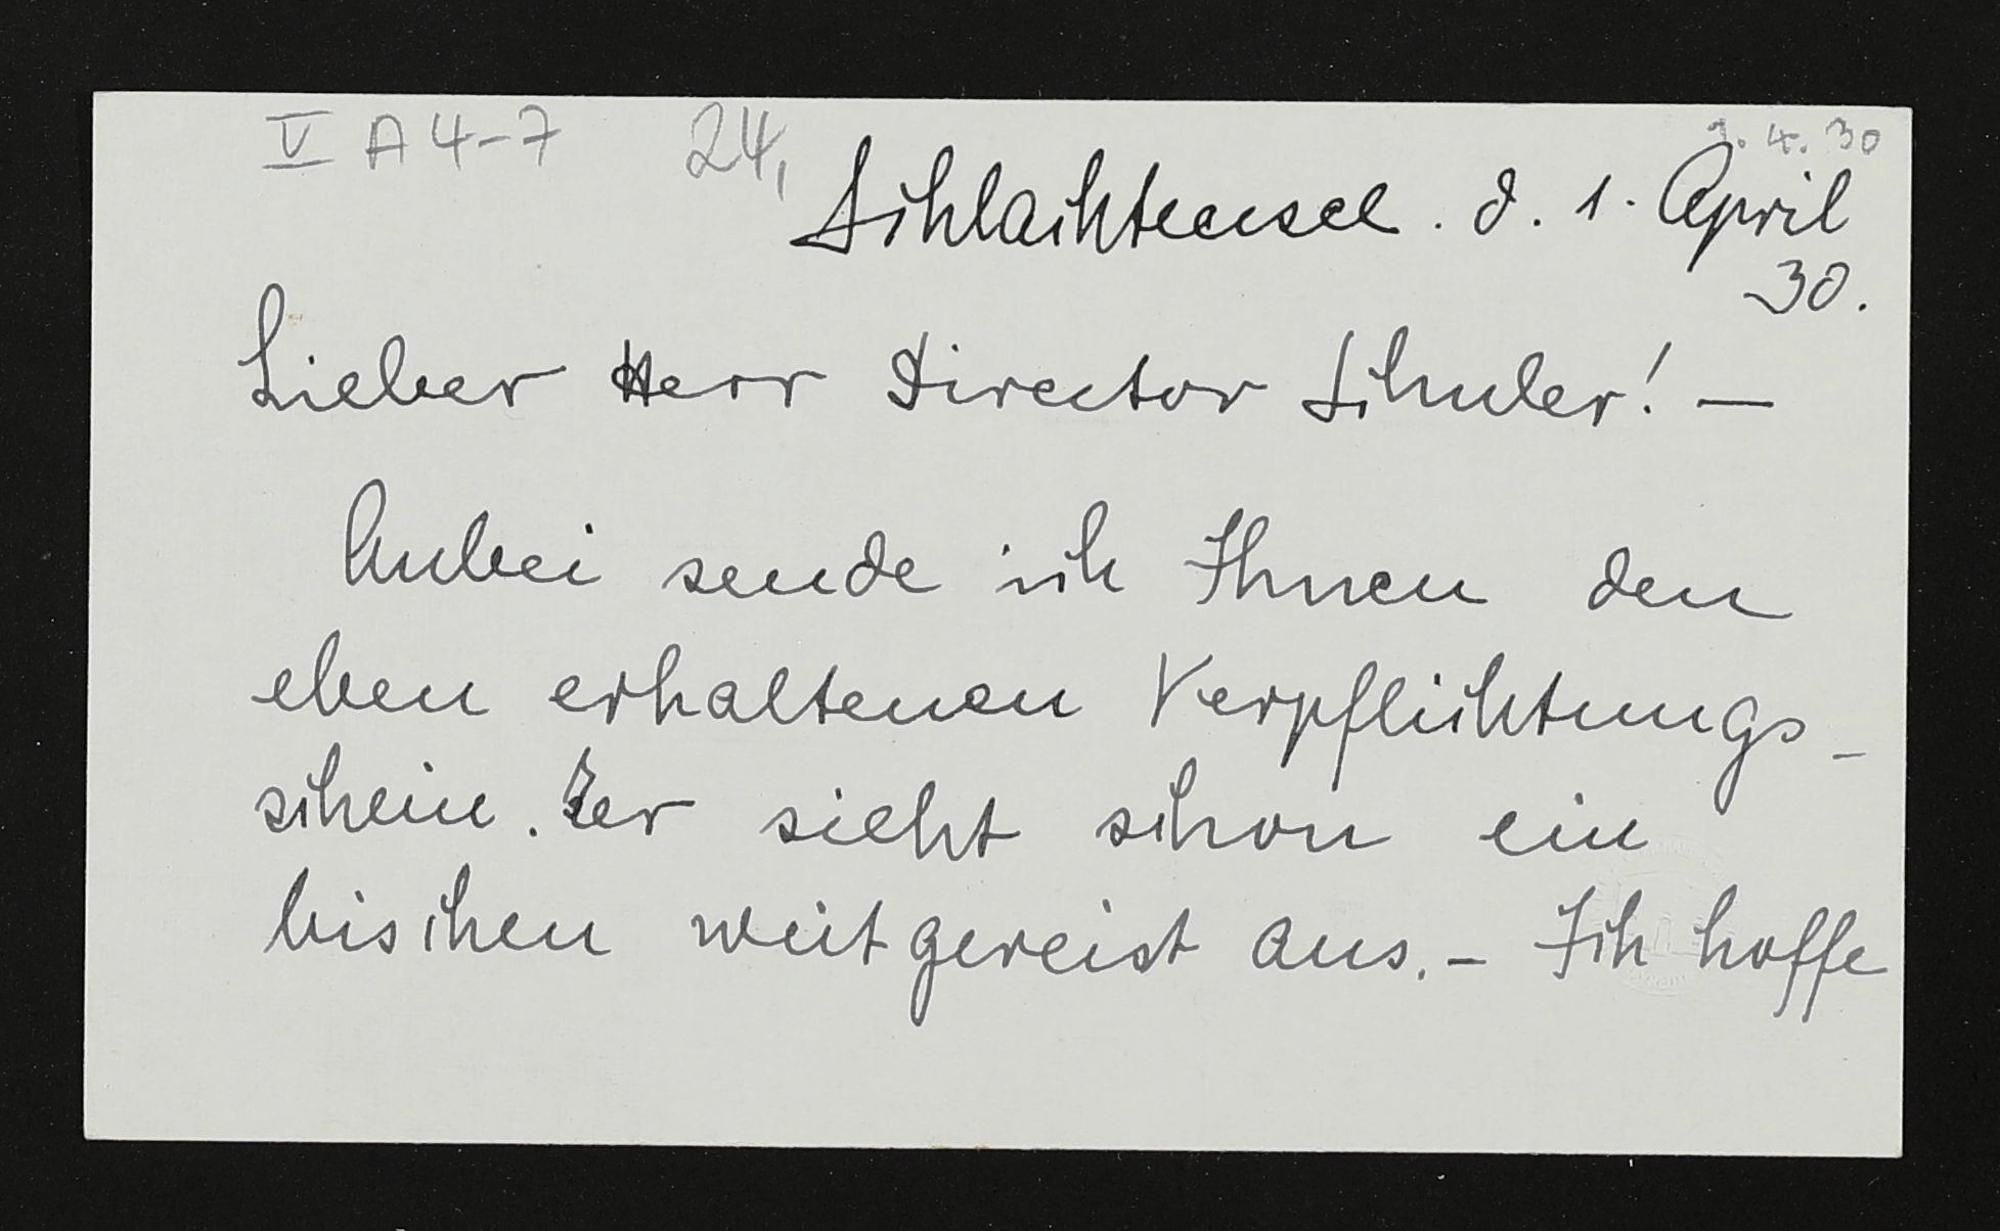 V A 4-7 24, 1. 4. 30
Schlachtensee. d. 1. April
30.
Lieber Herr Director Schuler! —
Anbei sende ich Ihnen den
eben erhaltenen Verpflichtungs-
schein. Er sieht schon ein
bischen weitgereist aus. - Ich hoffe